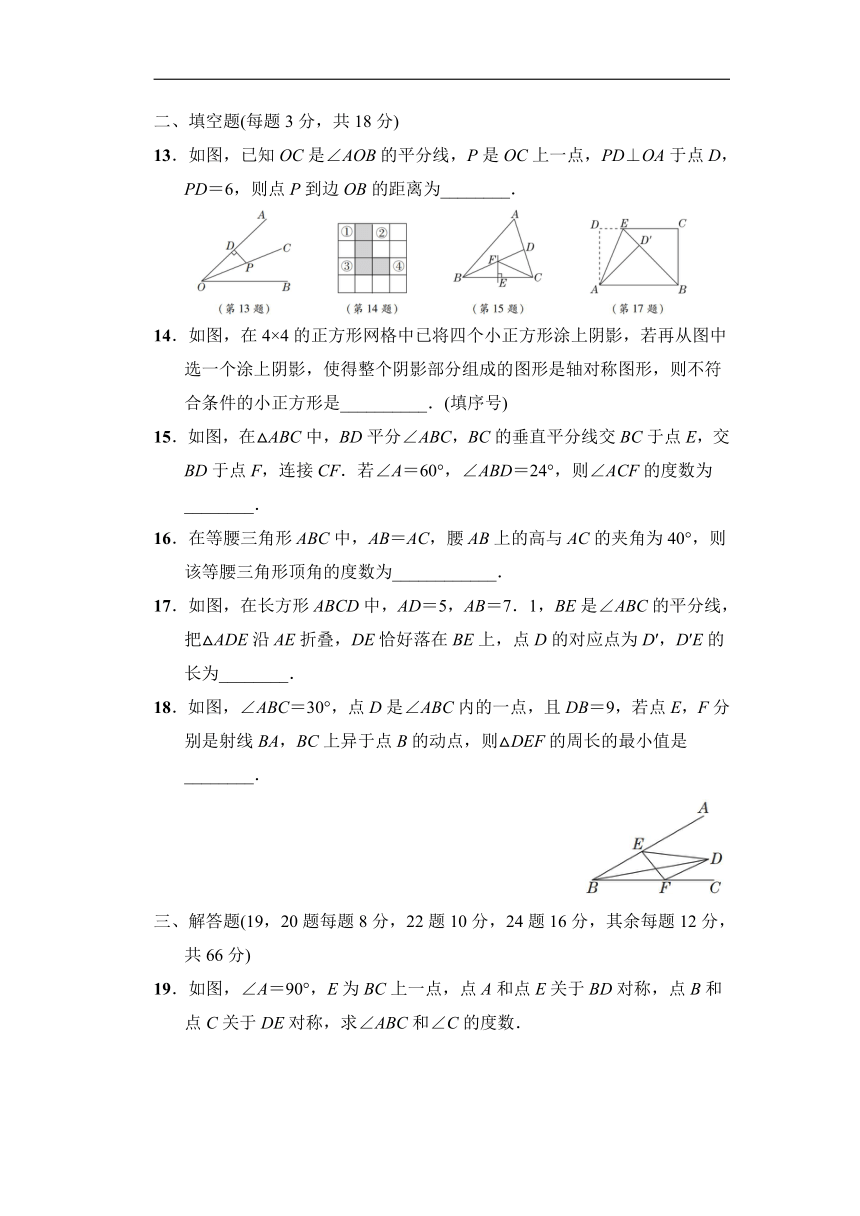 二、填空题(每题 3 分，共 18 分)
13．如图，已知 OC 是∠AOB 的平分线，P 是 OC 上一点，PD⊥OA 于点 D，
PD＝6，则点 P 到边 OB 的距离为________．
A D C P O B
① ② ③ ④
A D F B E C
D E C D′ A B
(第 13 题) (第 14 题) (第 15 题) (第 17 题)
14．如图，在 4×4 的正方形网格中已将四个小正方形涂上阴影，若再从图中
选一个涂上阴影，使得整个阴影部分组成的图形是轴对称图形，则不符
合条件的小正方形是__________．(填序号)
15．如图，在△ABC 中，BD 平分∠ABC，BC 的垂直平分线交 BC 于点 E，交
BD 于点 F，连接 CF．若∠A＝60°，∠ABD＝24°，则∠ACF 的度数为
________．
16．在等腰三角形 ABC 中，AB＝AC，腰 AB 上的高与 AC 的夹角为 40°，则
该等腰三角形顶角的度数为____________．
17．如图，在长方形 ABCD 中，AD＝5，AB＝7．1，BE 是∠ABC 的平分线，
把△ADE 沿 AE 折叠，DE 恰好落在 BE 上，点 D 的对应点为 D′，D′E 的
长为________．
18．如图，∠ABC＝30°，点 D 是∠ABC 内的一点，且 DB＝9，若点 E，F 分
别是射线 BA，BC 上异于点 B 的动点，则△DEF 的周长的最小值是
________．
A E D B F C
三、解答题(19，20 题每题 8 分，22 题 10 分，24 题 16 分，其余每题 12 分，
共 66 分)
19．如图，∠A＝90°，E 为 BC 上一点，点 A 和点 E 关于 BD 对称，点 B 和
点 C 关于 DE 对称，求∠ABC 和∠C 的度数．